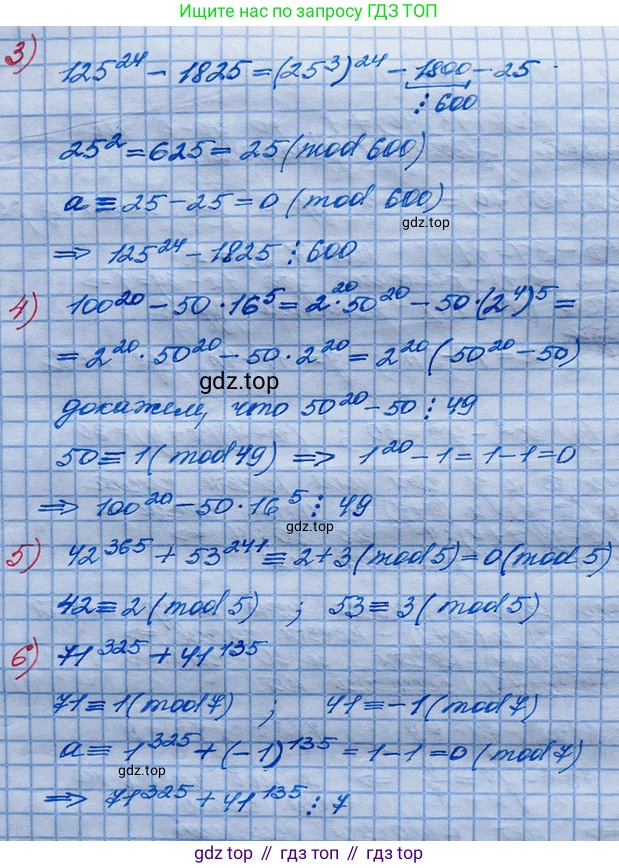 Ищите нас по запросу ГДЗ ТОП
3) 125²⁴ - 1825 = (25³)²⁴ - 1800 - 25
⋮ 600
25² = 625 = 25 (mod 600)
a ≡ 25 - 25 = 0 (mod 600)
gdz.top
⇒ 125²⁴ - 1825 ⋮ 600
4) 100²⁰ - 50 · 16⁵ = 2²⁰ · 50²⁰ - 50 · (2⁴)⁵ =
= 2²⁰ · 50²⁰ - 50 · 2²⁰ = 2²⁰ (50²⁰ - 50)
gdz.top
докажем, что 50²⁰ - 50 ⋮ 49
50 ≡ 1 (mod 49) ⇒ 1²⁰ - 1 = 1 - 1 = 0
⇒ 100²⁰ - 50 · 16⁵ ⋮ 49
gdz.top
5) 42³⁶⁵ + 53²⁴¹ ≡ 2 + 3 (mod 5) = 0 (mod 5)
42 ≡ 2 (mod 5) ; 53 ≡ 3 (mod 5)
6) 71³²⁵ + 41¹³⁵
71 ≡ 1 (mod 7) ; 41 ≡ -1 (mod 7)
a ≡ 1³²⁵ + (-1)¹³⁵ = 1 - 1 = 0 (mod 7)
gdz.top
⇒ 71³²⁵ + 41¹³⁵ ⋮ 7
gdz top // гдз топ // gdz.top